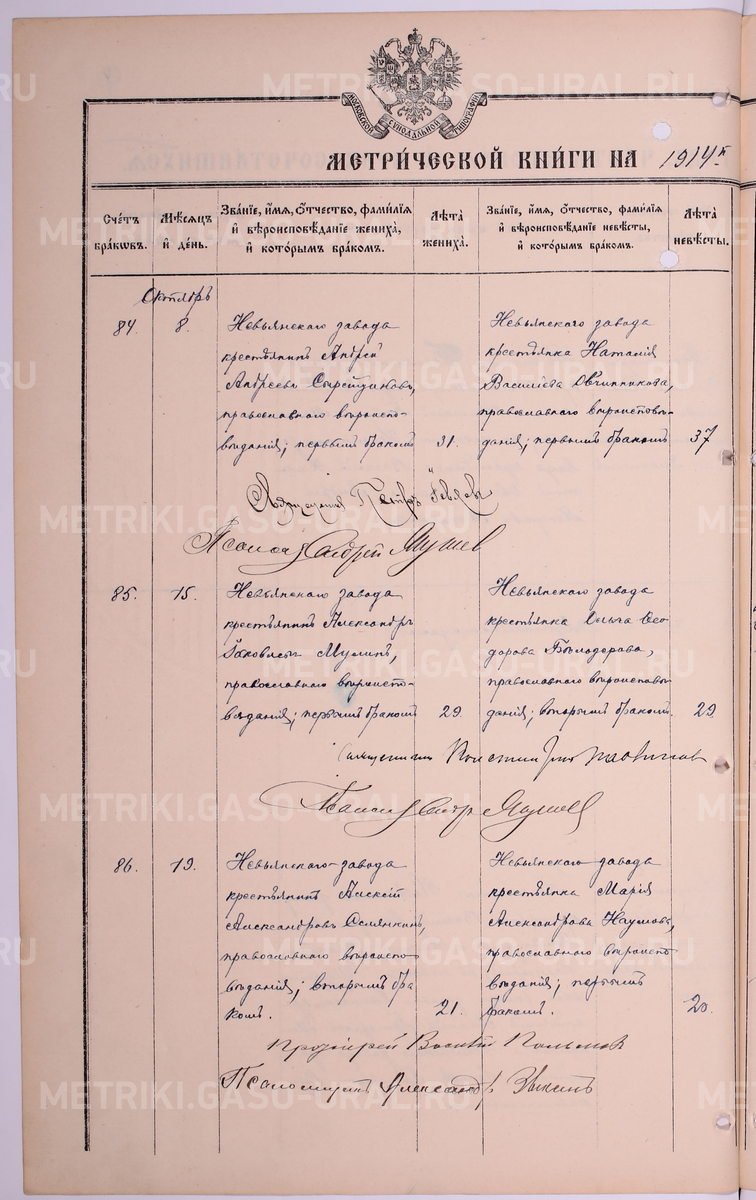 МОСКОВСКОЙ СѴНОДАЛЬНОЙ ТИПОГРАФІИ
МЕТРИ́ЧЕСКОЙ КНИ́ГИ НА 1914 г.
Сче́тъ бра́ковъ.
Мѣ́сяцъ и҆ де́нь.
Зва́ніе, и҆́мя, ѻ҆́тчество, фами́лія и҆ вѣроисповѣ́даніе жениха̀, и҆ кото́рымъ бра́комъ.
Лѣ́та жениха̀.
Зва́ніе, и҆́мя, ѻ҆́тчество, фами́лія и҆ вѣроисповѣ́даніе невѣ́сты, и҆ кото́рымъ бра́комъ.
Лѣ́та невѣ́сты.
Октябрь
84.
8.
Невьянскаго завода
крестьянинъ Андрей
Андреевъ
православнаго вѣроиспо-
вѣданія; первымъ бракомъ
31.
Невьянскаго завода
крестьянка Наталія
Василіева Овчинникова,
православнаго вѣроисповѣ-
данія; первымъ бракомъ
37
Священникъ Петръ
Псаломщ Андрей Якушев
85.
15.
Невьянскаго завода
крестьянинъ Александръ
Іаковлевъ Мулинъ,
православнаго вѣроиспо-
вѣданія; первымъ бракомъ
29.
Невьянскаго завода
крестьянка Ольга Ѳео-
дорова Бѣлодорова,
православнаго вѣроисповѣ-
данія; вторымъ бракомъ.
29.
Священникъ Константинъ
Псалом Андр Якушев
86.
19.
Невьянскаго завода
крестьянинъ Алексій
Александровъ Семянкинъ,
православнаго вѣроиспо-
вѣданія; вторымъ бра
комъ.
21.
Невьянскаго завода
крестьянка Марія
Александрова Наумова,
православнаго вѣроиспо
вѣданія; первымъ
бракомъ.
20.
Протоіерей Василій
Псаломщикъ Александръ Зыкинъ
METRIKI.GASO-URAL.RU